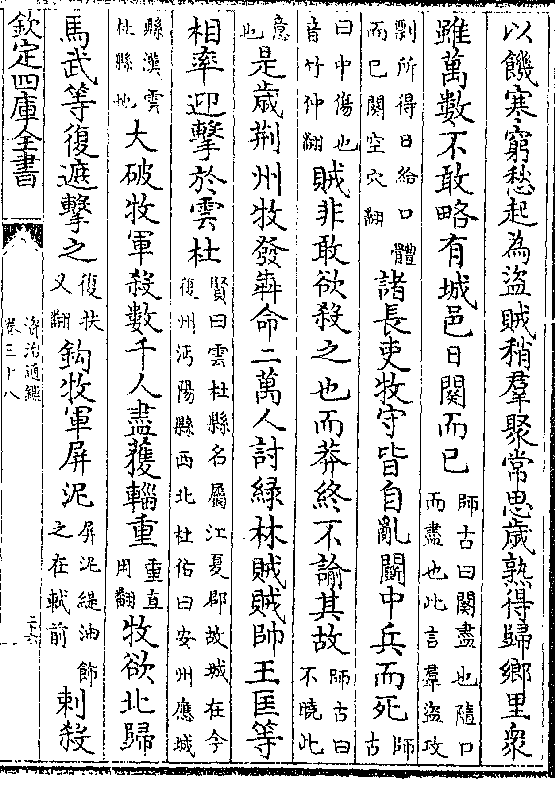 以饑寒窮愁起為盜賊稍羣聚常思歲熟得歸鄉里衆
雖萬數不敢略有城邑日闋而已師古曰闋盡也隨口而盡也此言羣盜攻
剽所得日給口體而已闋空穴翻諸長吏牧守皆自亂鬭中兵而死師古
曰中傷也音竹仲翻賊非敢欲殺之也而莽終不諭其故師古曰不曉此
意也是歲荆州牧發犇命二萬人討緑林賊賊帥王匡等
相率迎擊於雲杜賢曰雲杜縣名屬江夏郡故城在今復州沔陽縣西北杜佑曰安州應城
縣漢雲杜縣地大破牧軍殺數千人盡獲輜重重直用翻牧欲北歸
馬武等復遮擊之復扶又翻鈎牧軍屏泥屏泥緹油飾之在軾前刺殺
欽定四庫全書
資治通鑑
卷三十八
二六